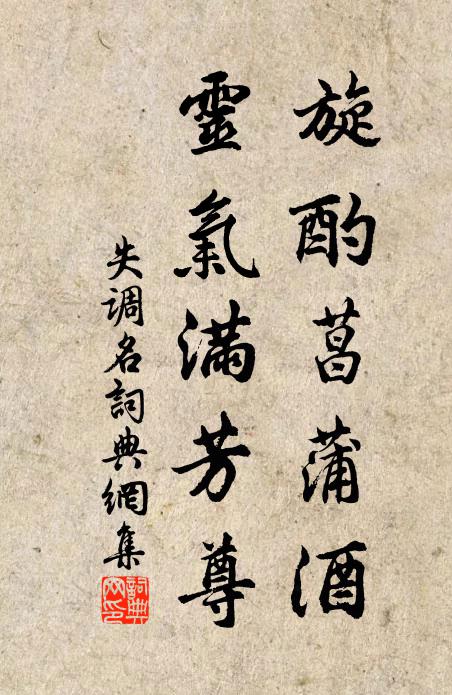 旋酌菖蒲酒
靈氣滿芳尊
失调名詞典網集
詞典网印